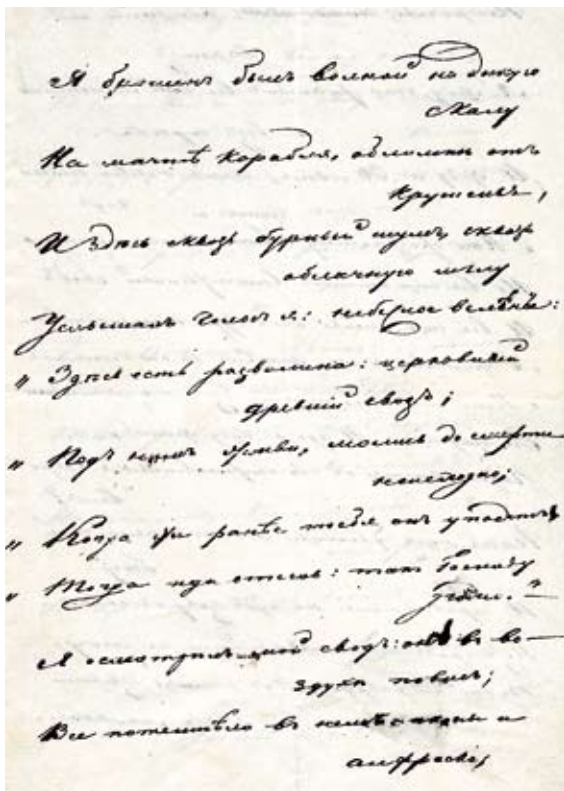 Я брошенъ былъ волной на дикую
скалу
На мачтѣ корабля, обломки отъ
крушенья,
И здѣсь сквозь бурный шумъ, сквозь
облачную мглу
Услышалъ голосъ я: небесное велѣнье:
„ Здѣсь есть развалина: церковный
древній сводъ;
„ Подъ нимъ живи, молись до смерти
неисходно;
„ Когда же ранѣе тебя онъ упадетъ,
„ Тогда иди отсель: такъ Господу
угодно."—
Я осмотрѣлъ мой сводъ: онъ въ во-
здухѣ повисъ;
Все потемнѣло въ немъ: и
альфрески,